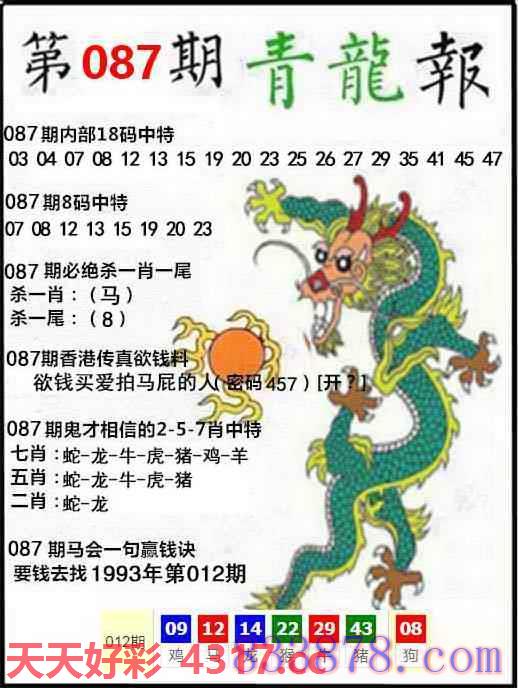 第087期青龍報
087期内部18码中特
03 04 07 08 12 13 15 19 20 23 25 26 27 29 35 41 45 47
087期8码中特
07 08 12 13 15 19 20 23
087期必绝杀一肖一尾
杀一肖：（马）
杀一尾：（8）
087期香港传真欲钱料
欲钱买爱拍马屁的人(密码457)[开?]
087期鬼才相信的2-5-7肖中特
七肖：蛇-龙-牛-虎-猪-鸡-羊
五肖：蛇-龙-牛-虎-猪
二肖：蛇-龙
087期马会一句赢钱诀
要钱去找1993年第012期
012期 09 12 14 22 29 43 08
鸡 马 龙 猴 牛 猪 狗
天天好彩 4317.cc
878.com